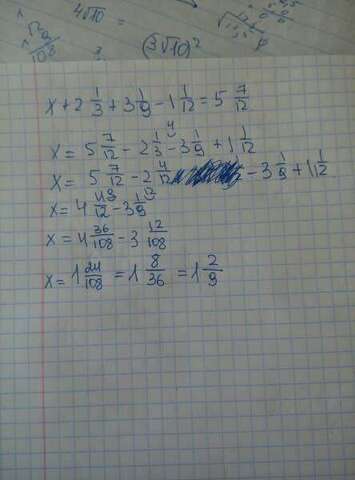 4√10 =
108
(3√10)²
x + 2 1/3 + 3 1/9 - 1 1/12 = 5 7/12
x = 5 7/12 - 2 1/3 - 3 1/9 + 1 1/12
x = 5 7/12 - 2 4/12 - 3 1/9 + 1 1/12
x = 4 4/12 - 3 1/9
x = 4 36/108 - 3 12/108
x = 1 24/108 = 1 8/36 = 1 2/9